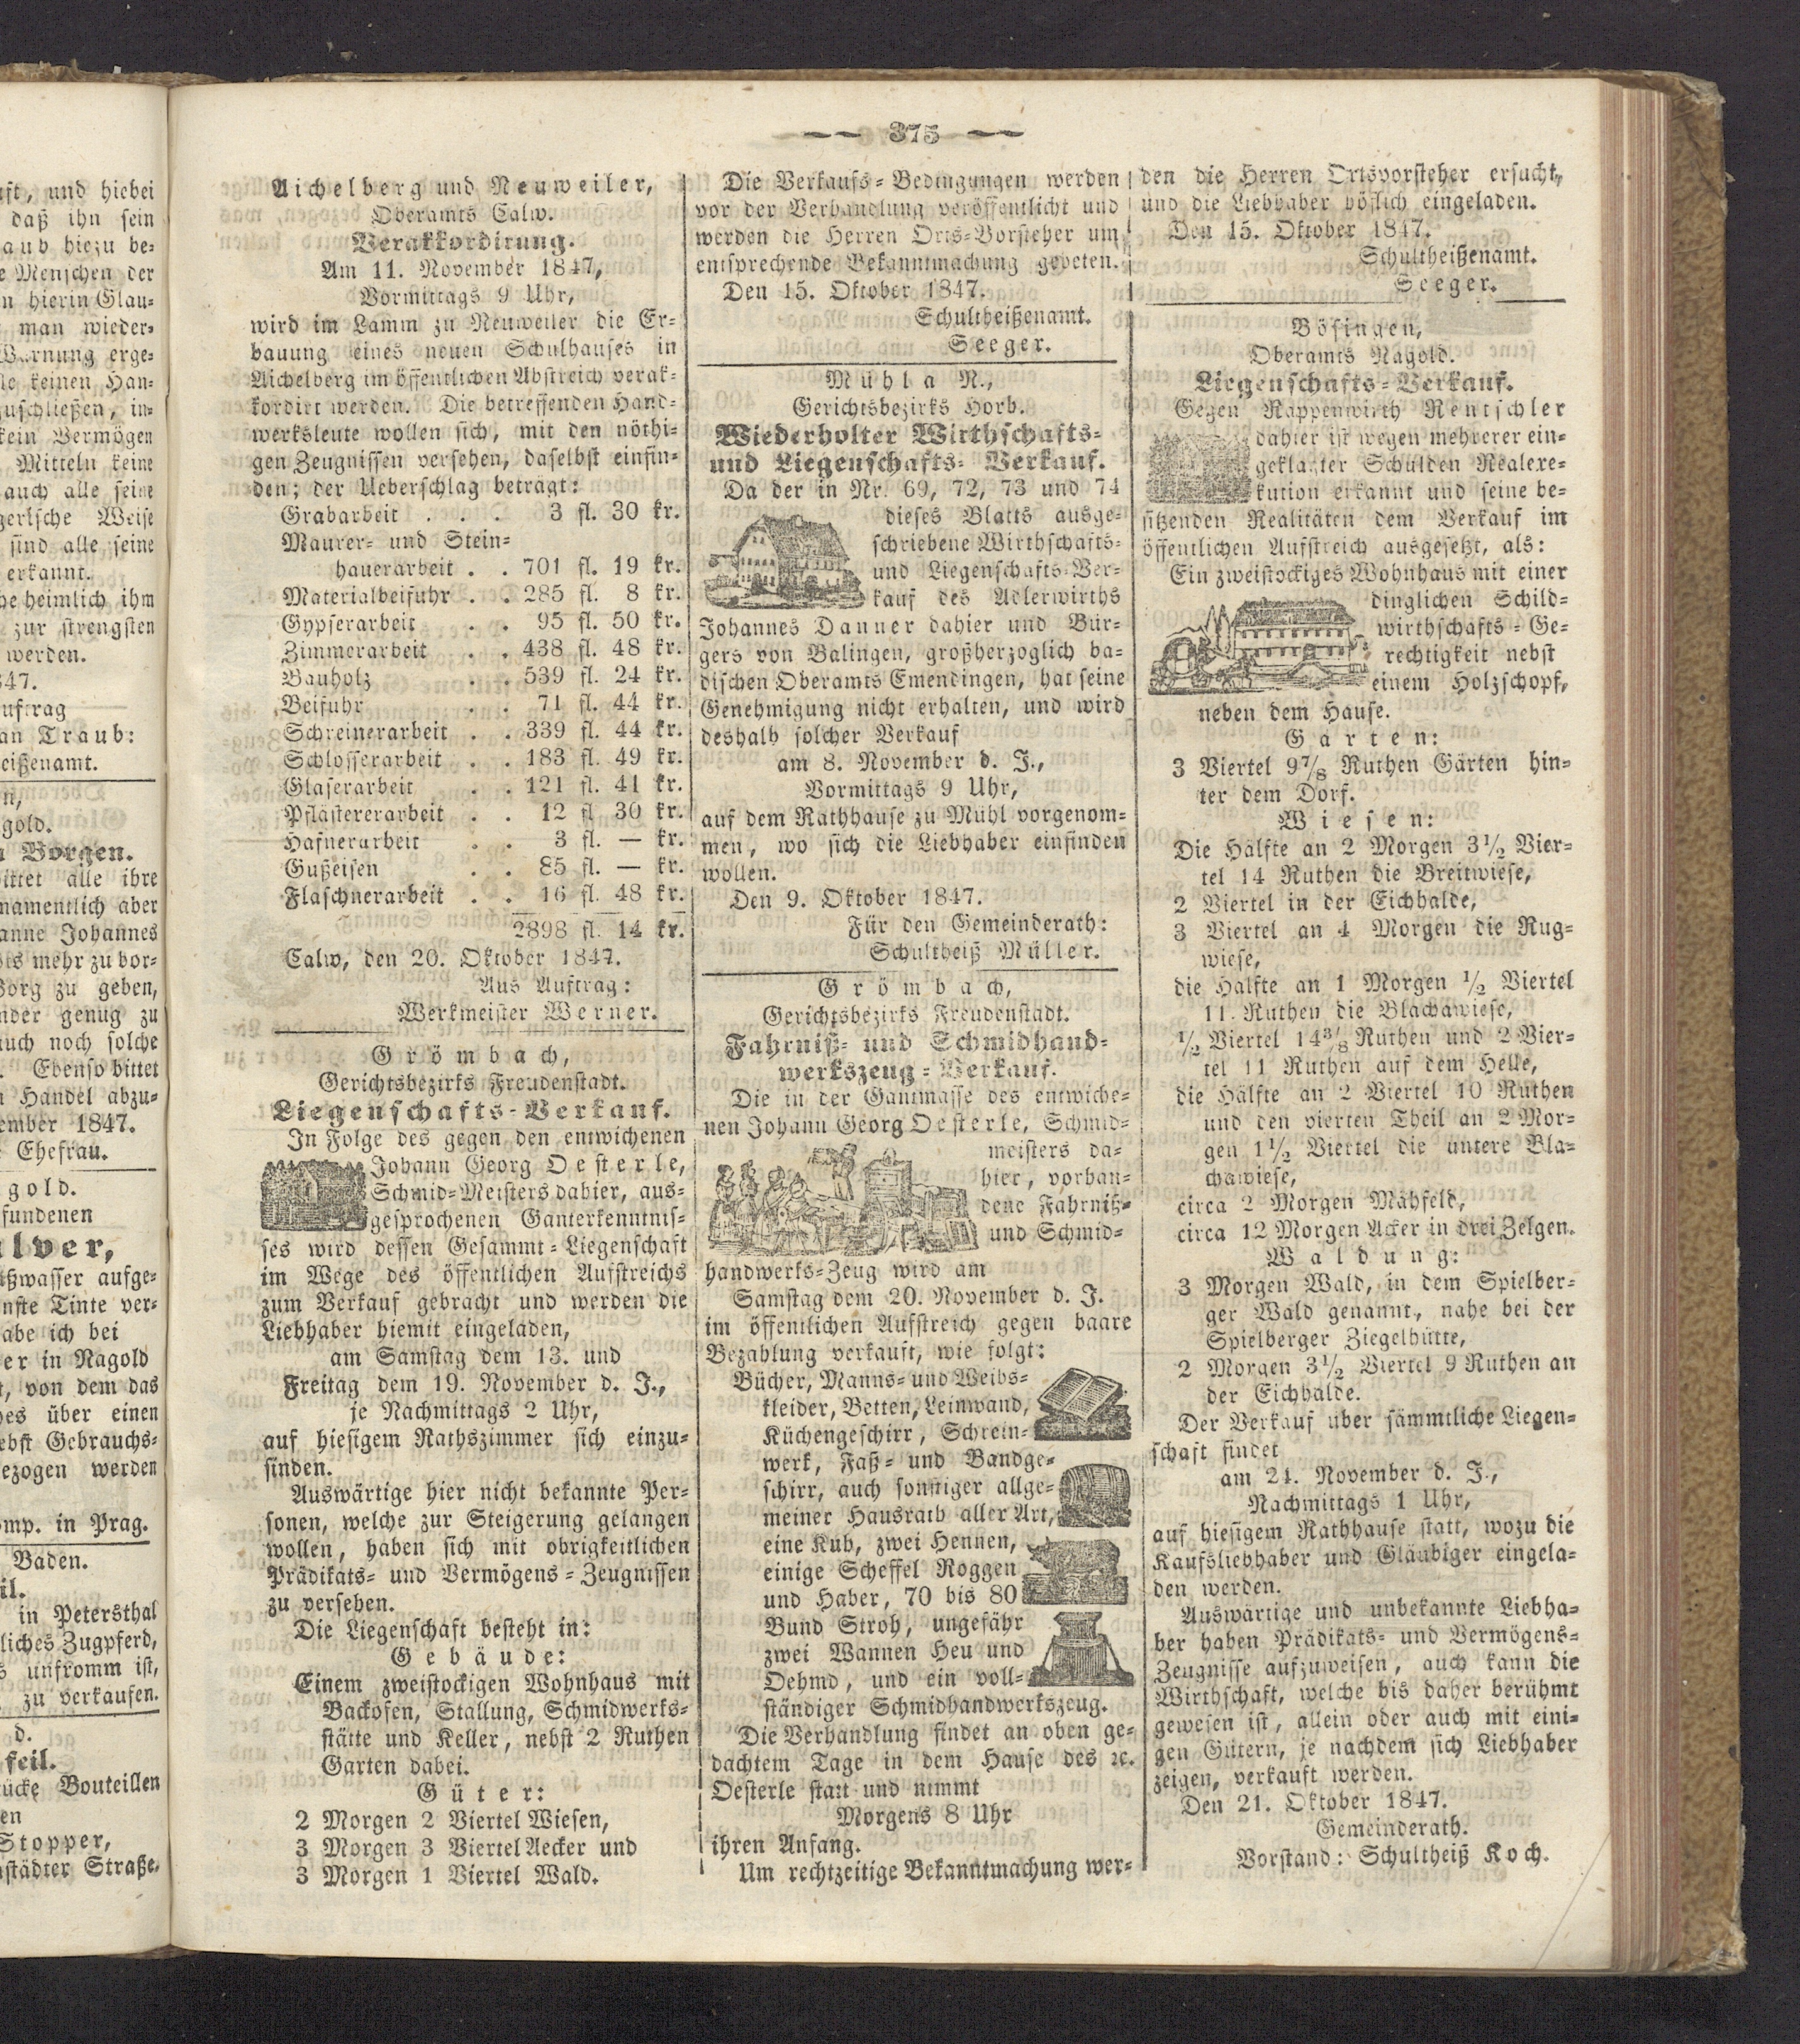 aft, und hiebei
daß ihn sein
aub hiezu be-
e Menschen der
n hierin Glau-
man wieder-
Warnung erge-
le keinen Han-
zuschließen, in-
kein Vermögen
Mitteln keine
auch alle seine
gerische Weise
sind alle seine
erkannt.
he heimlich ihm
zur strengsten
werden.
847.
uftrag
an Traub:
eißenamt.
n,
gold.
n Borgen.
bittet alle ihre
namentlich aber
anne Johannes
ts mehr zu bor-
Borg zu geben,
nder genug zu
auch noch solche
. Ebenso bittet
n Handel abzu-
ember 1847.
Ehefrau.
gold.
fundenen
ulver,
ißwasser aufge-
nste Tinte ver-
abe ich bei
er in Nagold
t, von dem das
hes über einen
ebst Gebrauchs-
ezogen werden
omp. in Prag.
Baden.
il.
in Petersthal
liches Zugpferd,
s unfromm ist,
zu verkaufen.
d.
feil.
ücke Bouteillen
en
Stopper,
städter Straße.
— 375 —
Aichelberg und Neuweiler,
Oberamts Calw.
Verakkordirung.
Am 11. November 1847,
Vormittags 9 Uhr,
wird im Lamm zu Neuweiler die Er-
bauung eines neuen Schulhauses in
Aichelberg im öffentlichen Abstreich verak-
kordirt werden. Die betreffenden Hand-
werksleute wollen sich, mit den nöthi-
gen Zeugnissen versehen, daselbst einfin-
den; der Ueberschlag beträgt:
Grabarbeit . . . 3 fl. 30 kr.
Maurer- und Stein-
hauerarbeit . . 701 fl. 19 kr.
Materialbeifuhr . . 285 fl. 8 kr.
Gypserarbeit . . 95 fl. 50 kr.
Zimmerarbeit . . 438 fl. 48 kr.
Bauholz . . 539 fl. 24 kr.
Beifuhr . . 71 fl. 44 kr.
Schreinerarbeit . . 339 fl. 44 kr.
Schlosserarbeit . . 183 fl. 49 kr.
Glaserarbeit . . 121 fl. 41 kr.
Pflästererarbeit . . 12 fl 30 kr.
Hafnerarbeit . . 3 fl. — kr.
Gußeisen . . 85 fl. — kr.
Flaschnerarbeit . . 16 fl. 48 kr.
2898 fl. 14 kr.
Calw, den 20. Oktober 1847.
Aus Auftrag:
Werkmeister Werner.
Grömbach,
Gerichtsbezirks Freudenstadt.
Liegenschafts-Verkauf.
In Folge des gegen den entwichenen
Johann Georg Oesterle,
Schmid-Meisters dahier, aus-
gesprochenen Ganterkenntnis-
ses wird dessen Gesammt-Liegenschaft
im Wege des öffentlichen Aufstreichs
zum Verkauf gebracht und werden die
Liebhaber hiemit eingeladen,
am Samstag dem 13. und
Freitag dem 19. November d. J.,
je Nachmittags 2 Uhr,
auf hiesigem Rathszimmer sich einzu-
finden.
Auswärtige hier nicht bekannte Per-
sonen, welche zur Steigerung gelangen
wollen, haben sich mit obrigkeitlichen
Prädikats- und Vermögens-Zeugnissen
zu versehen.
Die Liegenschaft besteht in:
Gebäude:
Einem zweistockigen Wohnhaus mit
Backofen, Stallung, Schmidwerks-
stätte und Keller, nebst 2 Ruthen
Garten dabei.
Güter:
2 Morgen 2 Viertel Wiesen,
3 Morgen 3 Viertel Aecker und
3 Morgen 1 Viertel Wald.
Die Verkaufs-Bedingungen werden
vor der Verhandlung veröffentlicht und
werden die Herren Orts-Vorsteher um
entsprechende Bekanntmachung gebeten.
Den 15. Oktober 1847.
Schultheißenamt.
Seeger.
Mühl a N.,
Gerichtsbezirks Horb.
Wiederholter Wirthschafts-
und Liegenschafts-Verkauf.
Da der in Nr. 69, 72, 73 und 74
dieses Blatts ausge-
schriebene Wirthschafts-
und Liegenschafts-Ver-
kauf des Adlerwirths
Johannes Danner dahier und Bür-
gers von Balingen, großherzoglich ba-
dischen Oberamts Emendingen, hat seine
Genehmigung nicht erhalten, und wird
deshalb solcher Verkauf
am 8. November d. J.,
Vormittags 9 Uhr,
auf dem Rathhause zu Mühl vorgenom-
men, wo sich die Liebhaber einfinden
wollen.
Den 9. Oktober 1847.
Für den Gemeinderath:
Schultheiß Müller.
Grömbach,
Gerichtsbezirks Freudenstadt.
Fahrniß- und Schmidhand-
werkszeug-Verkauf.
Die in der Gantmasse des entwiche-
nen Johann Georg Oesterle, Schmid-
meisters da-
hier, vorhan-
dene Fahrniß-
und Schmid-
handwerks-Zeug wird am
Samstag dem 20. November d. J.
im öffentlichen Aufstreich gegen baare
Bezahlung verkauft, wie folgt:
Bücher, Manns- und Weibs-
kleider, Betten, Leinwand,
Küchengeschirr, Schrein-
werk, Faß- und Bandge-
schirr, auch sonstiger allge-
meiner Hausrath aller Art,
eine Kuh, zwei Hennen,
einige Scheffel Roggen
und Haber, 70 bis 80
Bund Stroh, ungefähr
zwei Wannen Heu und
Oehmd, und ein voll-
ständiger Schmidhandwerkszeug.
Die Verhandlung findet an oben ge-
dachtem Tage in dem Hause des ꝛc.
Oesterle statt und nimmt
Morgens 8 Uhr
ihren Anfang.
Um rechtzeitige Bekanntmachung wer-
den die Herren Ortsvorsteher ersucht,
und die Liebhaber höflich eingeladen.
Den 15. Oktober 1847.
Schultheißenamt.
Seeger.
Bösingen,
Oberamts Nagold.
Liegenschafts-Verkauf.
Gegen Rappenwirth Rentschler
dahier ist wegen mehrerer ein-
geklagter Schulden Realexe-
kution erkannt und seine be-
sitzenden Realitäten dem Verkauf im
öffentlichen Aufstreich ausgesetzt, als:
Ein zweistockiges Wohnhaus mit einer
dinglichen Schild-
wirthschafts-Ge-
rechtigkeit nebst
einem Holzschopf,
neben dem Hause.
Gärten:
3 Viertel 9⅞ Ruthen Gärten hin-
ter dem Dorf.
Wiesen:
Die Hälfte an 2 Morgen 3½ Vier-
tel 14 Ruthen die Breitwiese,
2 Viertel in der Eichhalde,
3 Viertel an 4 Morgen die Rug-
wiese,
die Hälfte an 1 Morgen ½ Viertel
11 Ruthen die Blachawiese,
½ Viertel 14⅜ Ruthen und 2 Vier-
tel 11 Ruthen auf dem Helle,
die Hälfte an 2 Viertel 10 Ruthen
und den vierten Theil an 2 Mor-
gen 1½ Viertel die untere Bla-
chawiese,
circa 2 Morgen Mähfeld,
circa 12 Morgen Acker in drei Zelgen.
Waldung:
3 Morgen Wald, in dem Spielber-
ger Wald genannt, nahe bei der
Spielberger Ziegelhütte,
2 Morgen 3½ Viertel 9 Ruthen an
der Eichhalde.
Der Verkauf über sämmtliche Liegen-
schaft findet
am 24. November d. J.,
Nachmittags 1 Uhr,
auf hiesigem Rathhause statt, wozu die
Kaufsliebhaber und Gläubiger eingela-
den werden.
Auswärtige und unbekannte Liebha-
ber haben Prädikats- und Vermögens-
Zeugnisse aufzuweisen, auch kann die
Wirthschaft, welche bis daher berühmt
gewesen ist, allein oder auch mit eini-
gen Gütern, je nachdem sich Liebhaber
zeigen, verkauft werden.
Den 21. Oktober 1847.
Gemeinderath.
Vorstand: Schultheiß Koch.